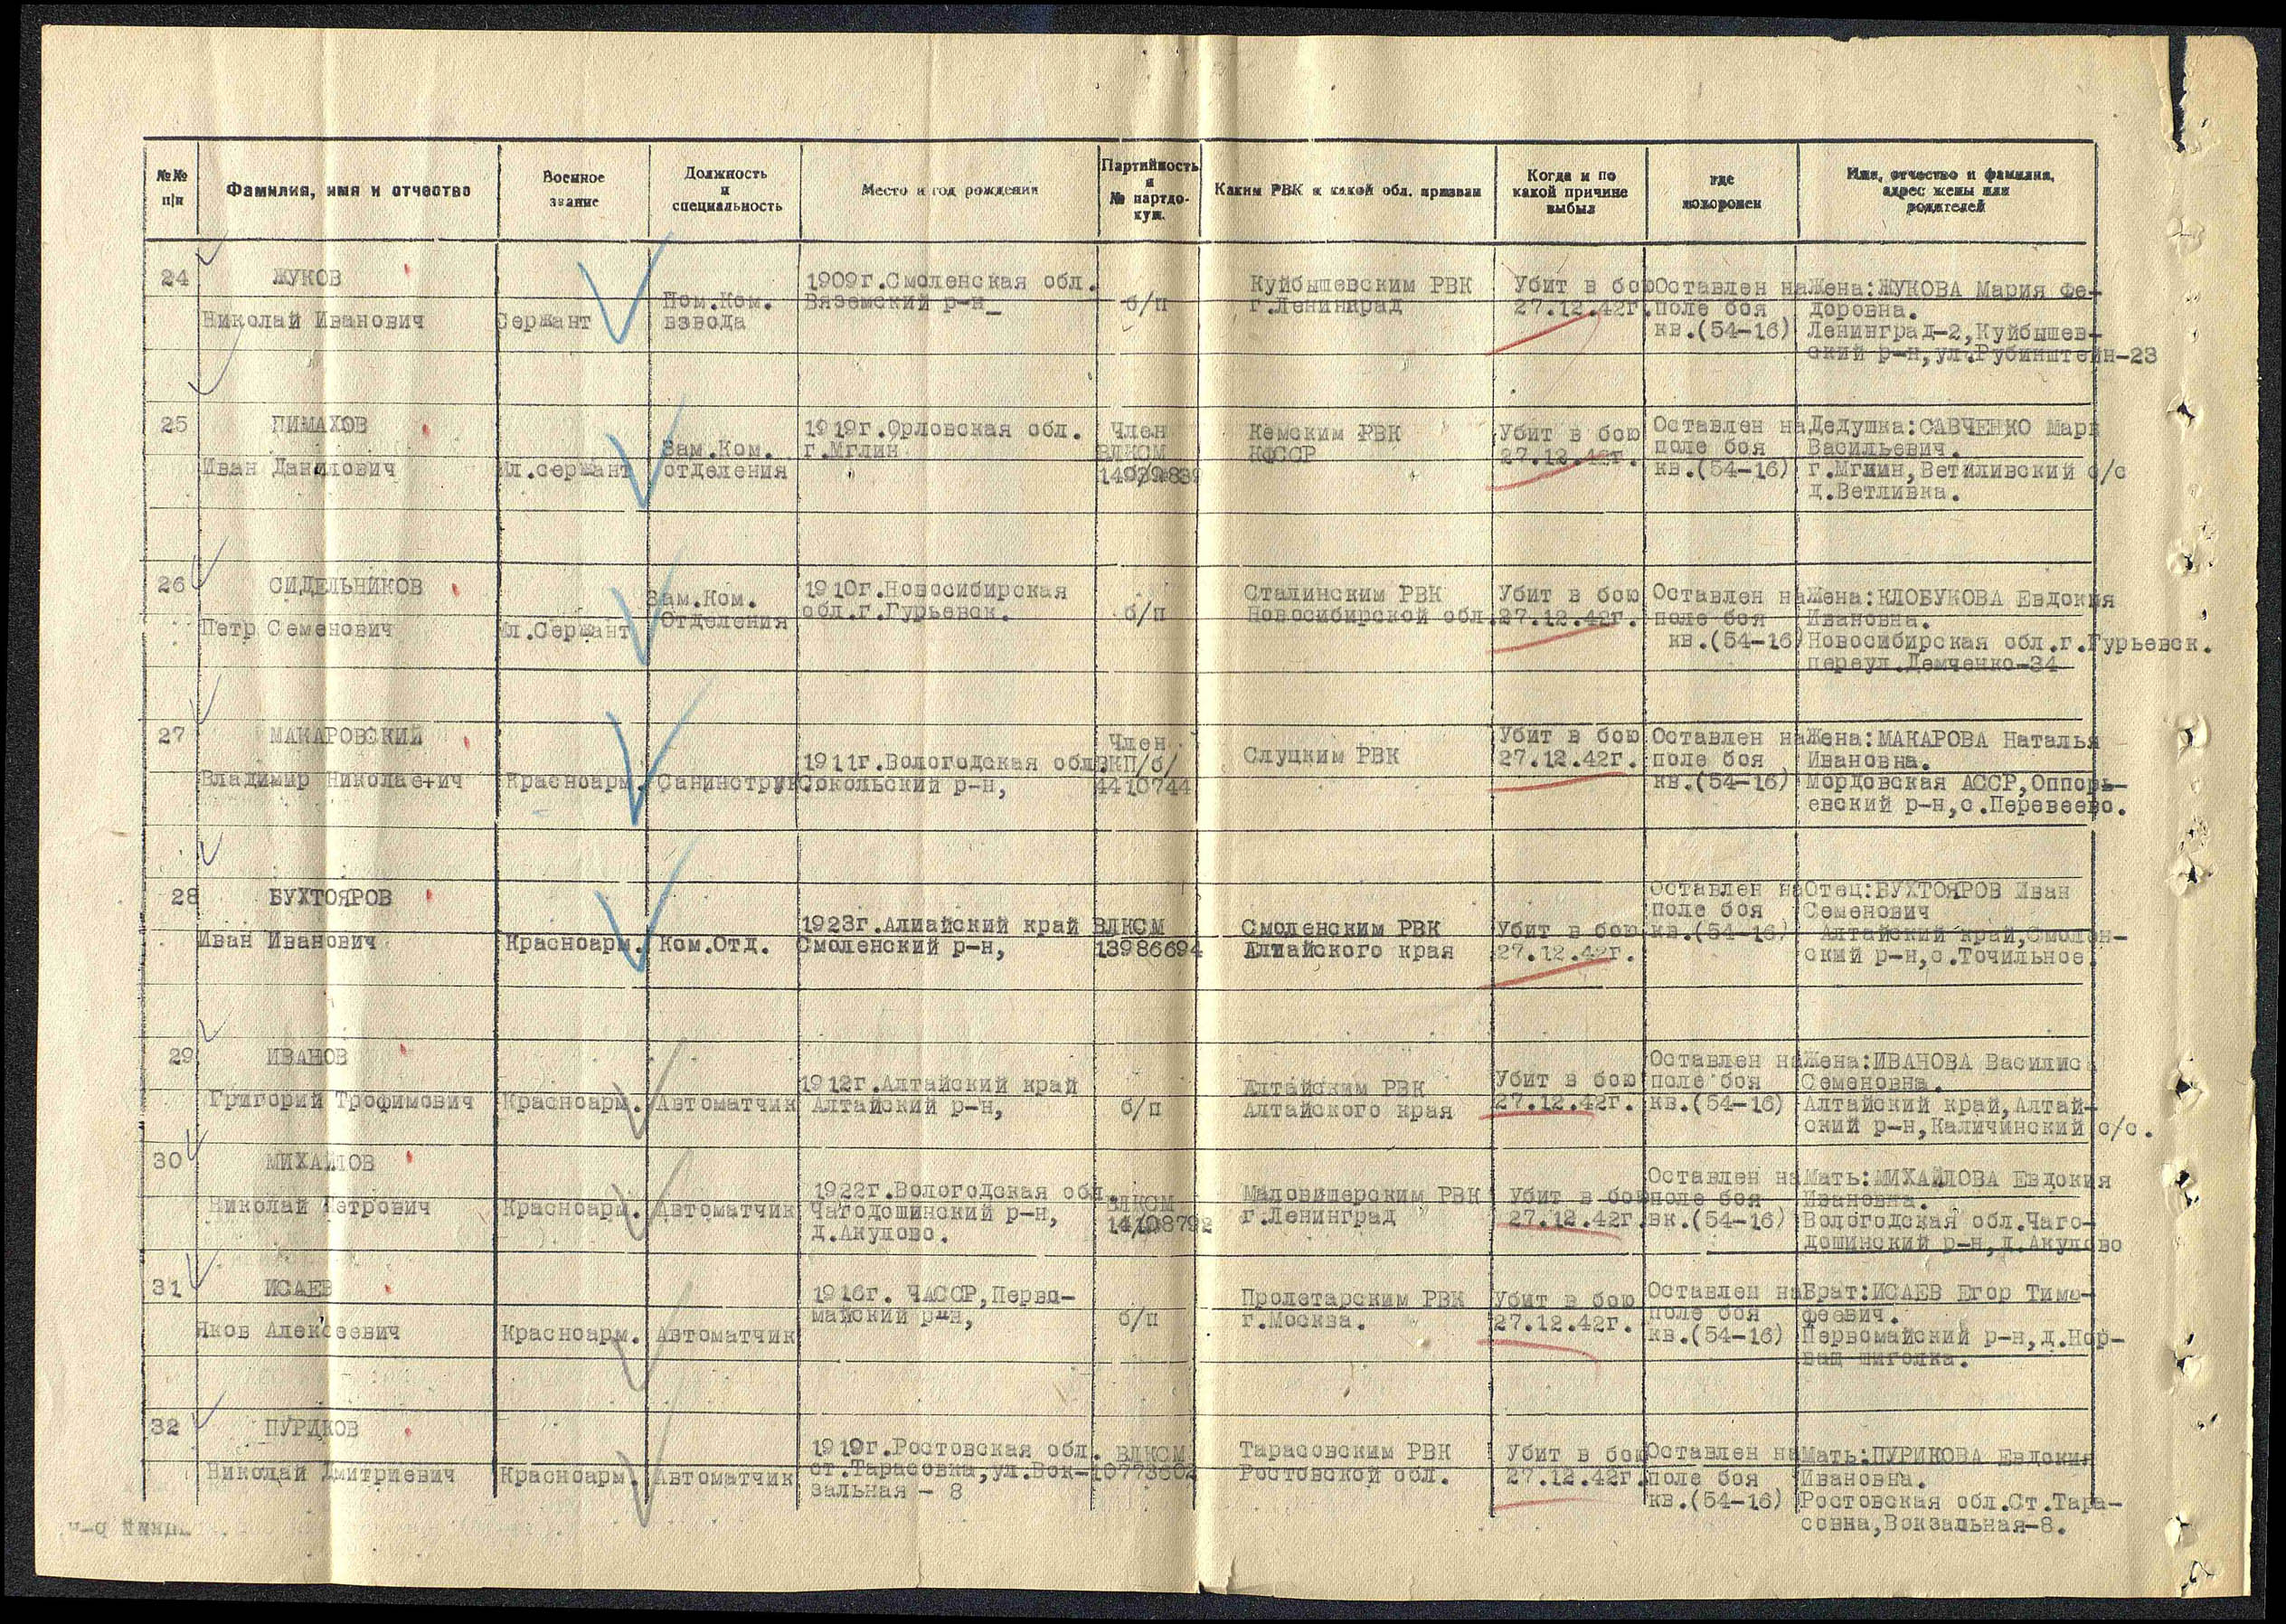 №№ п/п
Фамилия, имя и отчество
Военное звание
Должность и специальность
Место и год рождения
Партийность и № партдокум.
Каким РВК и какой обл. призван
Когда и по какой причине выбыл
где похоронен
Имя, отчество и фамилия, адрес жены или родителей
24
ЖУКОВ
Николай Иванович
Сержант
Пом.Ком.
взвода
1909г.Смоленская обл.
Вяземский р-н_
б/п
Куйбышевским РВК
г.Ленинград
Убит в бою
27.12.42г.
Оставлен на
поле боя
кв.(54-16)
Жена:ЖУКОВА Мария Фе-
доровна.
Ленинград-2,Куйбышев-
ский р-н,ул.Рубинштейн-23
25
ПИМАХОВ
Иван Данилович
Мл.сержант
Зам.Ком.
отделения
1919г.Орловская обл.
г.Мглин
Член
ВЛКСМ
Кемским РВК
КФССР
Убит в бою
27.12.42г.
Оставлен на
поле боя
кв.(54-16)
Дедушка:САВЧЕНКО Марк
Васильевич.
г.Мглин,Ветиливский с/с
д.Ветливка.
26
СИДЕЛЬНИКОВ
Петр Семенович
Мл.Сержант
Зам.Ком.
Отделения
1910г.Новосибирская
обл.г.Гурьевск.
б/п
Сталинским РВК
Новосибирской обл.
Убит в бою
27.12.42г.
Оставлен на
поле боя
кв.(54-16)
Жена:КЛОБУКОВА Евдокия
Ивановна.
Новосибирская обл.г.Гурьевск.
переул.Демченко-34
27
МАКАРОВСКИЙ
Владимир Николае+ич
Красноарм.
Санинструк
1911г.Вологодская обл
Сокольский р-н,
Член
ВКП/б/
4410744
Слуцким РВК
Убит в бою
27.12.42г.
Оставлен на
поле боя
кв.(54-16)
Жена:МАКАРОВА Наталья
Ивановна.
Мордовская АССР,Оппорь-
евский р-н,с.Перевеево.
28
БУХТОЯРОВ
Иван Иванович
Красноарм.
Ком.Отд.
1923г.Алтайский край
Смоленский р-н,
ВЛКСМ
13986694
Смоленским РВК
Алтайского края
Убит в бою
27.12.42г.
Оставлен на
поле боя
кв.(54-16)
Отец:БУХТОЯРОВ Иван
Семенович
Алтайский край,Смолен-
ский р-н,с.Точильное.
29
ИВАНОВ
Григорий Трофимович
Красноарм.
Автоматчик
1912г.Алтайский край
Алтайский р-н,
б/п
Алтайским РВК
Алтайского края
Убит в бою
27.12.42г.
Оставлен на
поле боя
кв.(54-16)
Жена:ИВАНОВА Василиса
Семеновна.
Алтайский край,Алтай-
ский р-н,Каличинский с/с.
30
МИХАЙЛОВ
Николай Петрович
Красноарм.
Автоматчик
1922г.Вологодская обл.
Чагодошинский р-н,
д.Акулово.
ВЛКСМ
Маловишерским РВК
г.Ленинград
Убит в бою
27.12.42г.
Оставлен на
поле боя
вк.(54-16)
Мать:МИХАЙЛОВА Евдокия
Ивановна.
Вологодская обл.Чаго-
дошинский р-н,д.Акулово
31
ИСАЕВ
Яков Алексеевич
Красноарм.
Автоматчик
1916г. ЧАССР,Перво-
майский р-н,
б/п
Пролетарским РВК
г.Москва.
Убит в бою
27.12.42г.
Оставлен на
поле боя
кв.(54-16)
Брат:ИСАЕВ Егор Тимо-
феевич.
Первомайский р-н,д.Нор-
ваш шиголка.
32
ПУРИКОВ
Николай Дмитриевич
Красноарм.
Автоматчик
1919г.Ростовская обл.
ст.Тарасовка,ул.Вок-
зальная - 8
ВЛКСМ
Тарасовским РВК
Ростовской обл.
Убит в бою
27.12.42г.
Оставлен на
поле боя
кв.(54-16)
Мать:ПУРИКОВА Евдокия
Ивановна.
Ростовская обл.Ст.Тара-
совка,Вокзальная-8.